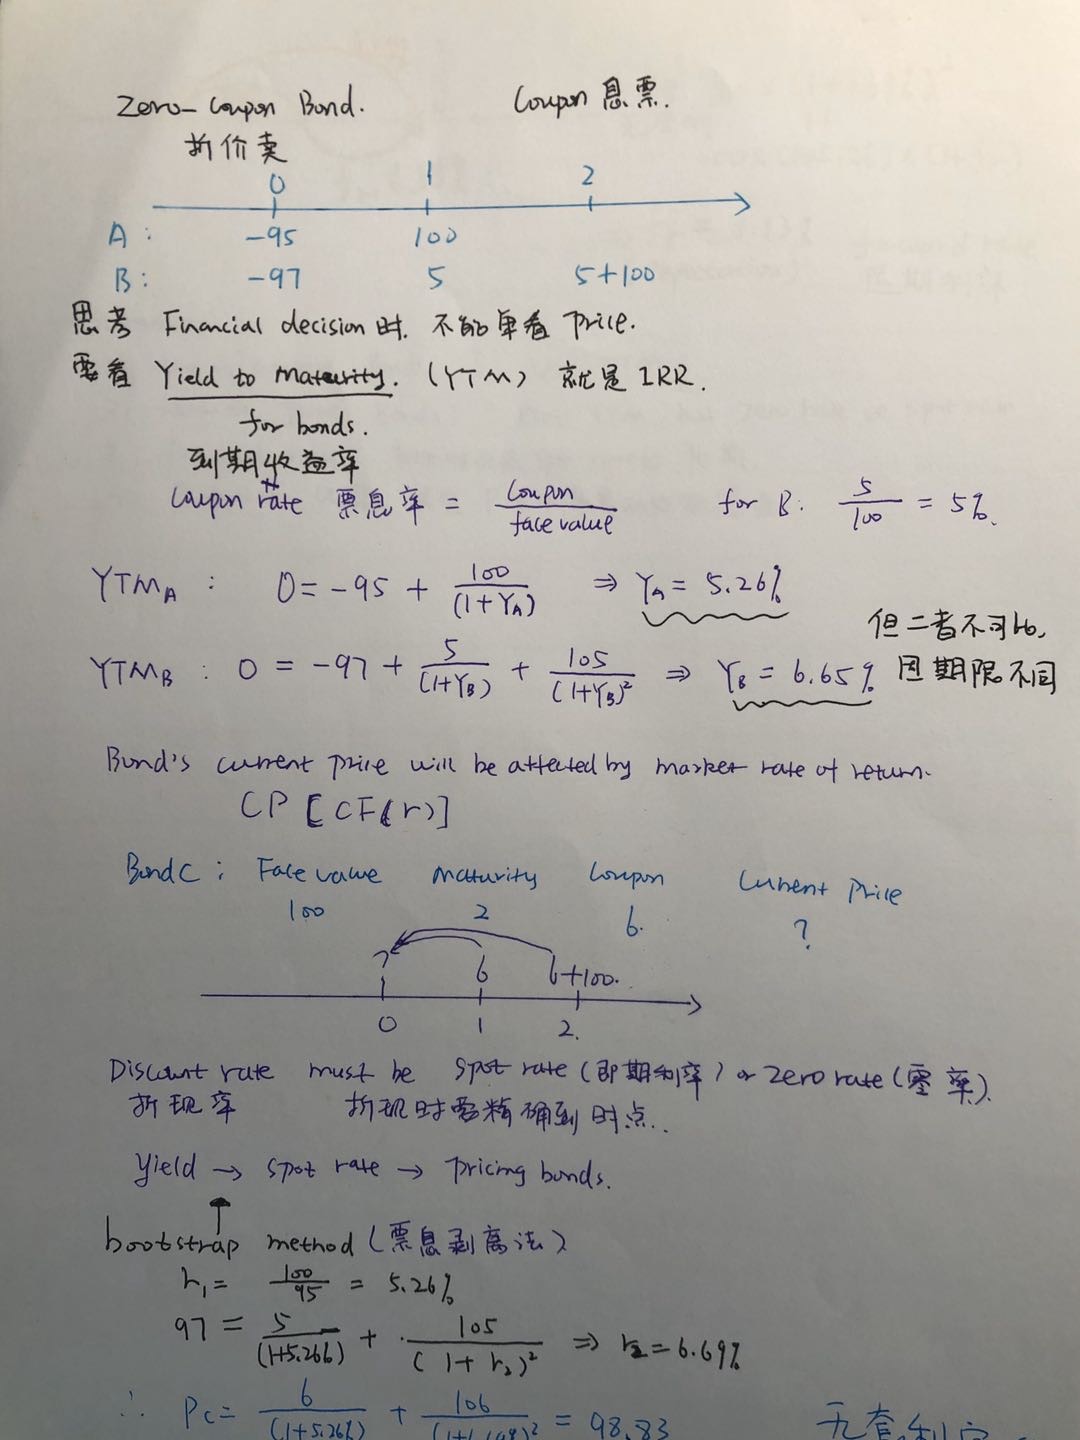 Zero-Coupon Bond. Coupon 息票.
折价卖
0 1 2
A: -95 100
B: -97 5 5+100
思考 Financial decision 时. 不能单看 Price.
要看 Yield to Maturity. (YTM) 就是 IRR.
for bonds.
到期收益率
Coupon rate 票息率 = Coupon / face value for B: 5/100 = 5%.
YTM_A : 0 = -95 + 100/(1+Y_A) ⇒ Y_A = 5.26%
但二者不可比,
YTM_B : 0 = -97 + 5/(1+Y_B) + 105/(1+Y_B)² ⇒ Y_B = 6.65%
因期限不同
Bond's current price will be affected by market rate of return.
CP [CF(r)]
Bond C: Face value Maturity Coupon Current Price
100 2 6. ?
? 6 6+100.
0 1 2.
Discount rate must be spot rate (即期利率) or zero rate (零率).
折现率 折现时要精确到时点.
Yield → spot rate → pricing bonds.
bootstrap method (票息剥离法)
r₁ = 100/95 = 5.26%
97 = 5/(1+5.26%) + 105/(1+r₂)² ⇒ r₂ = 6.69%
∴ Pc = 6/(1+5.26%) + 106 = 98.83 无套利